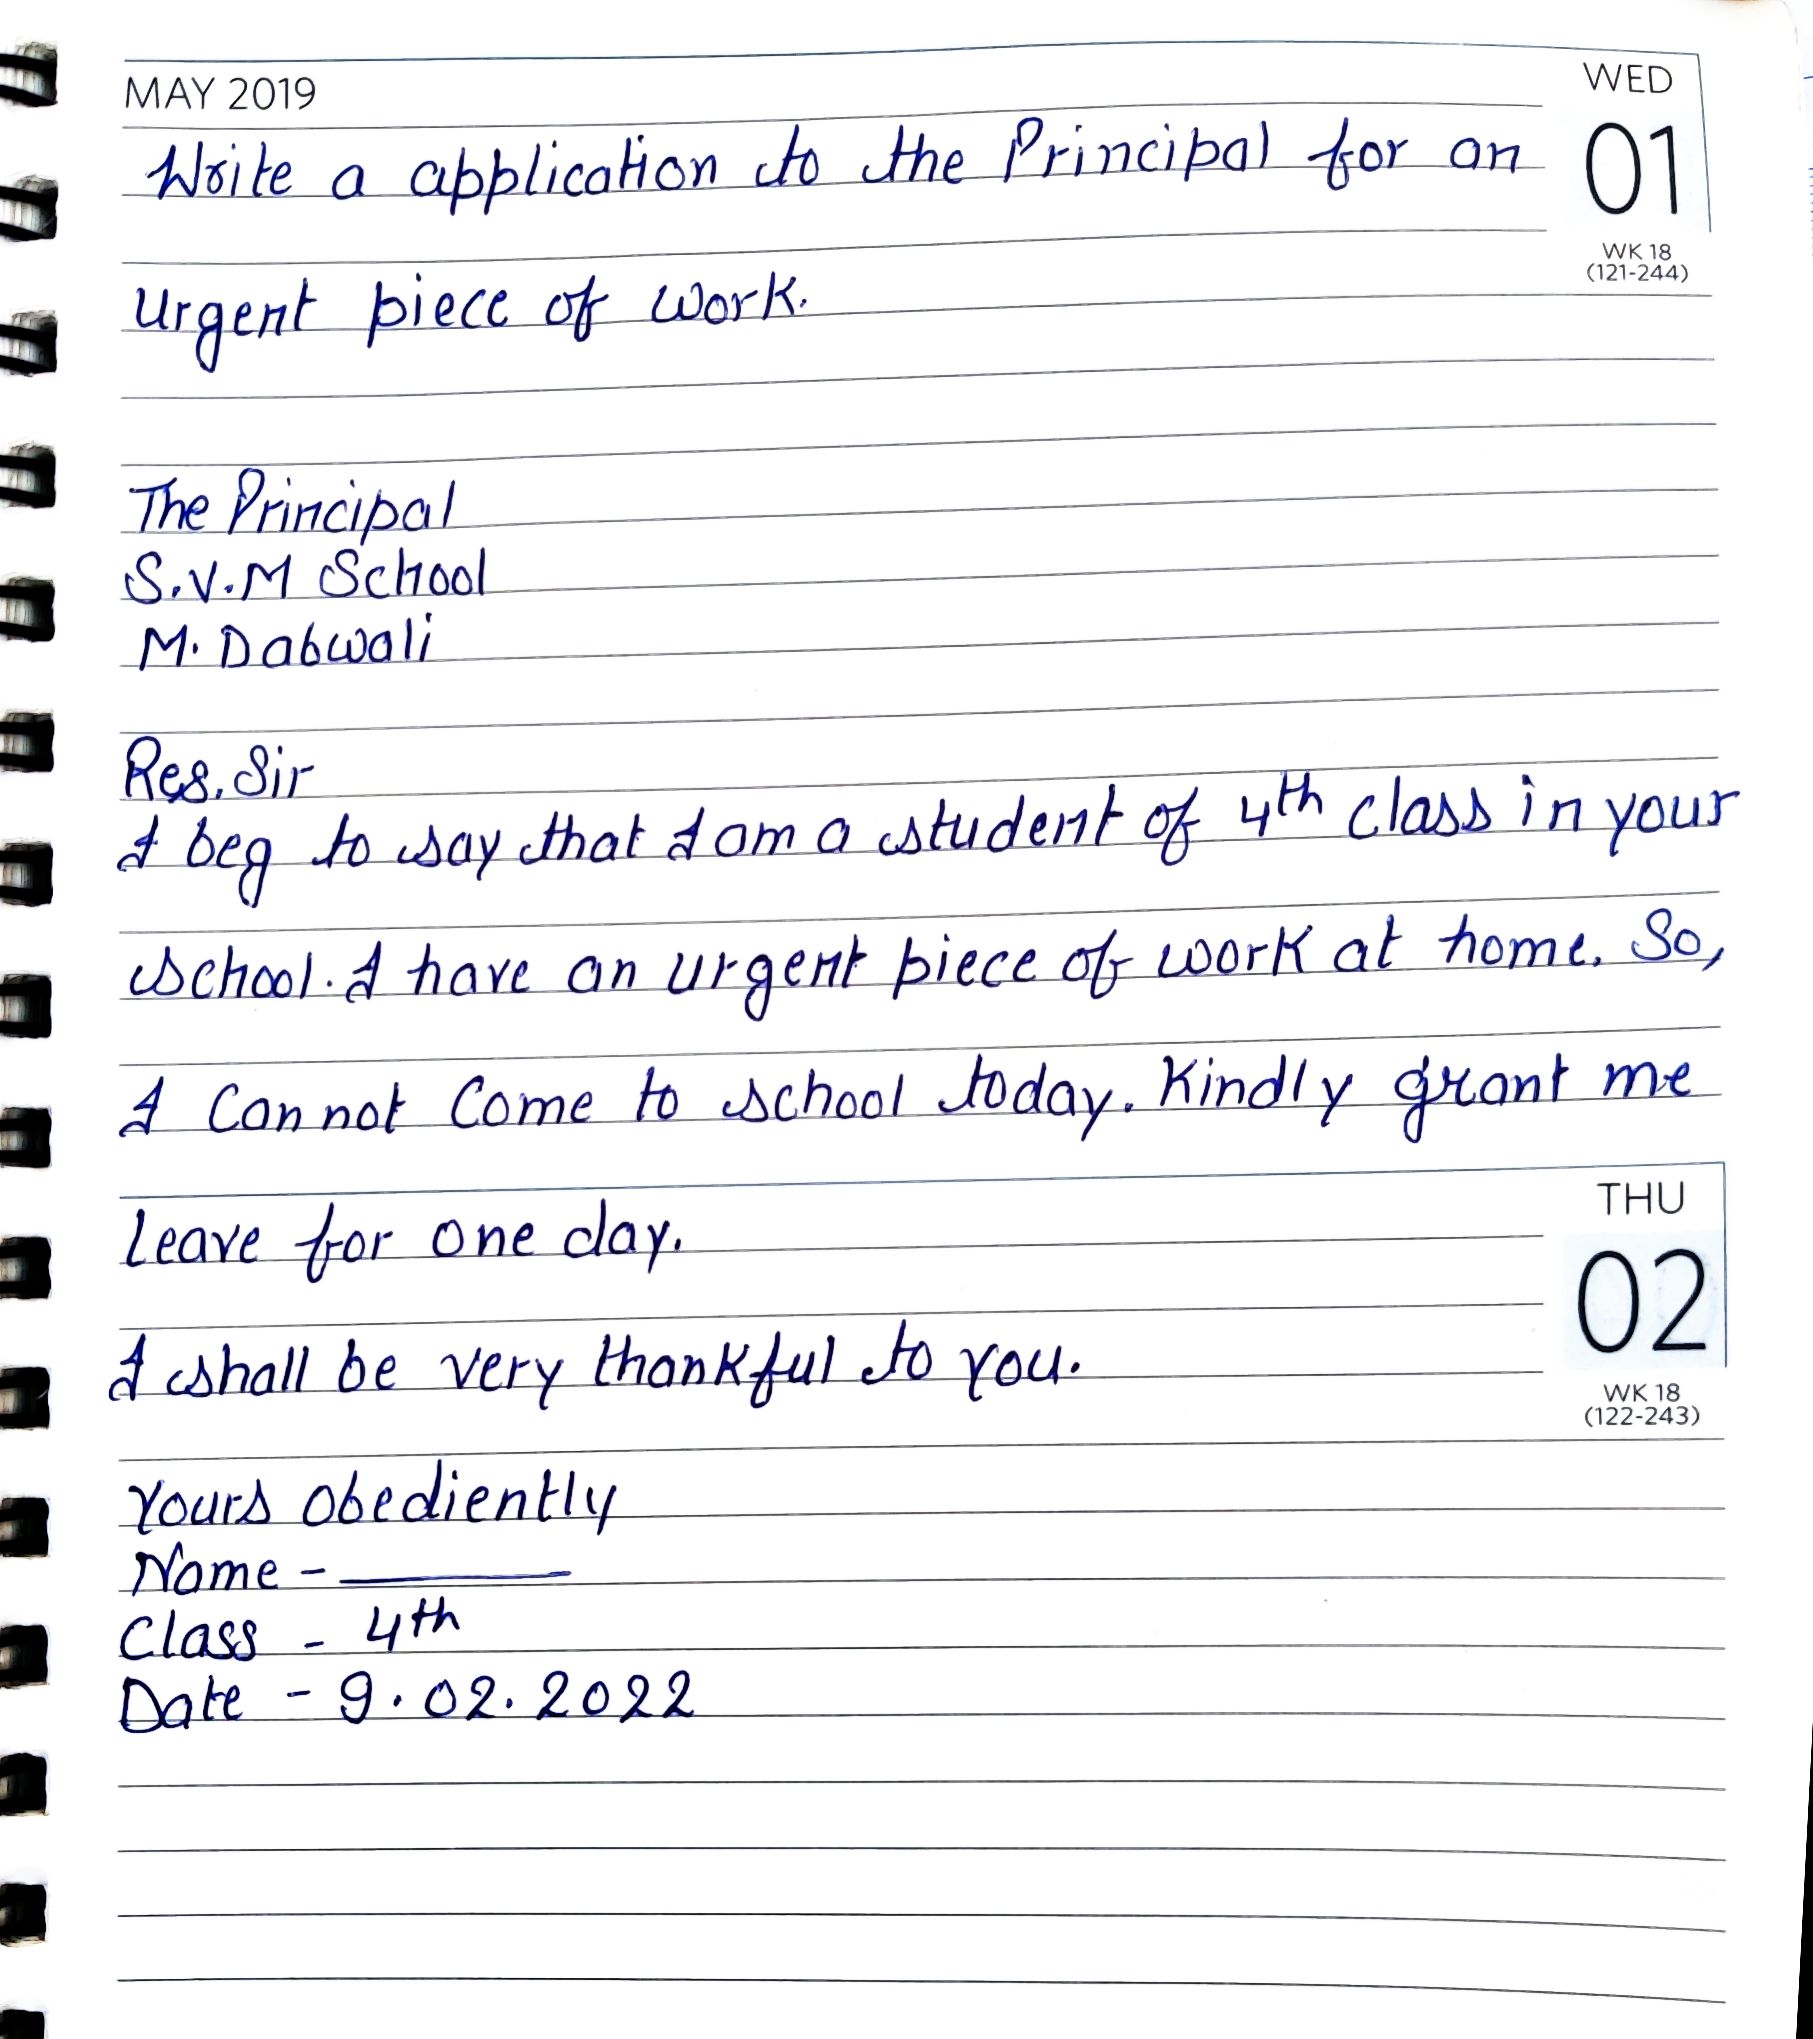 MAY 2019
WED
01
WK 18
(121-244)
Write a application to the Principal for an
Urgent piece of work.
The Principal
S.V.M School
M. Dabwali
Res. Sir
I beg to say that I am a student of 4th class in your
school. I have an urgent piece of work at home. So,
I Cannot Come to school today. Kindly grant me
THU
02
WK 18
(122-243)
leave for one day.
I shall be very thankful to you.
Yours Obediently
Name - ______
Class - 4th
Date - 9.02.2022